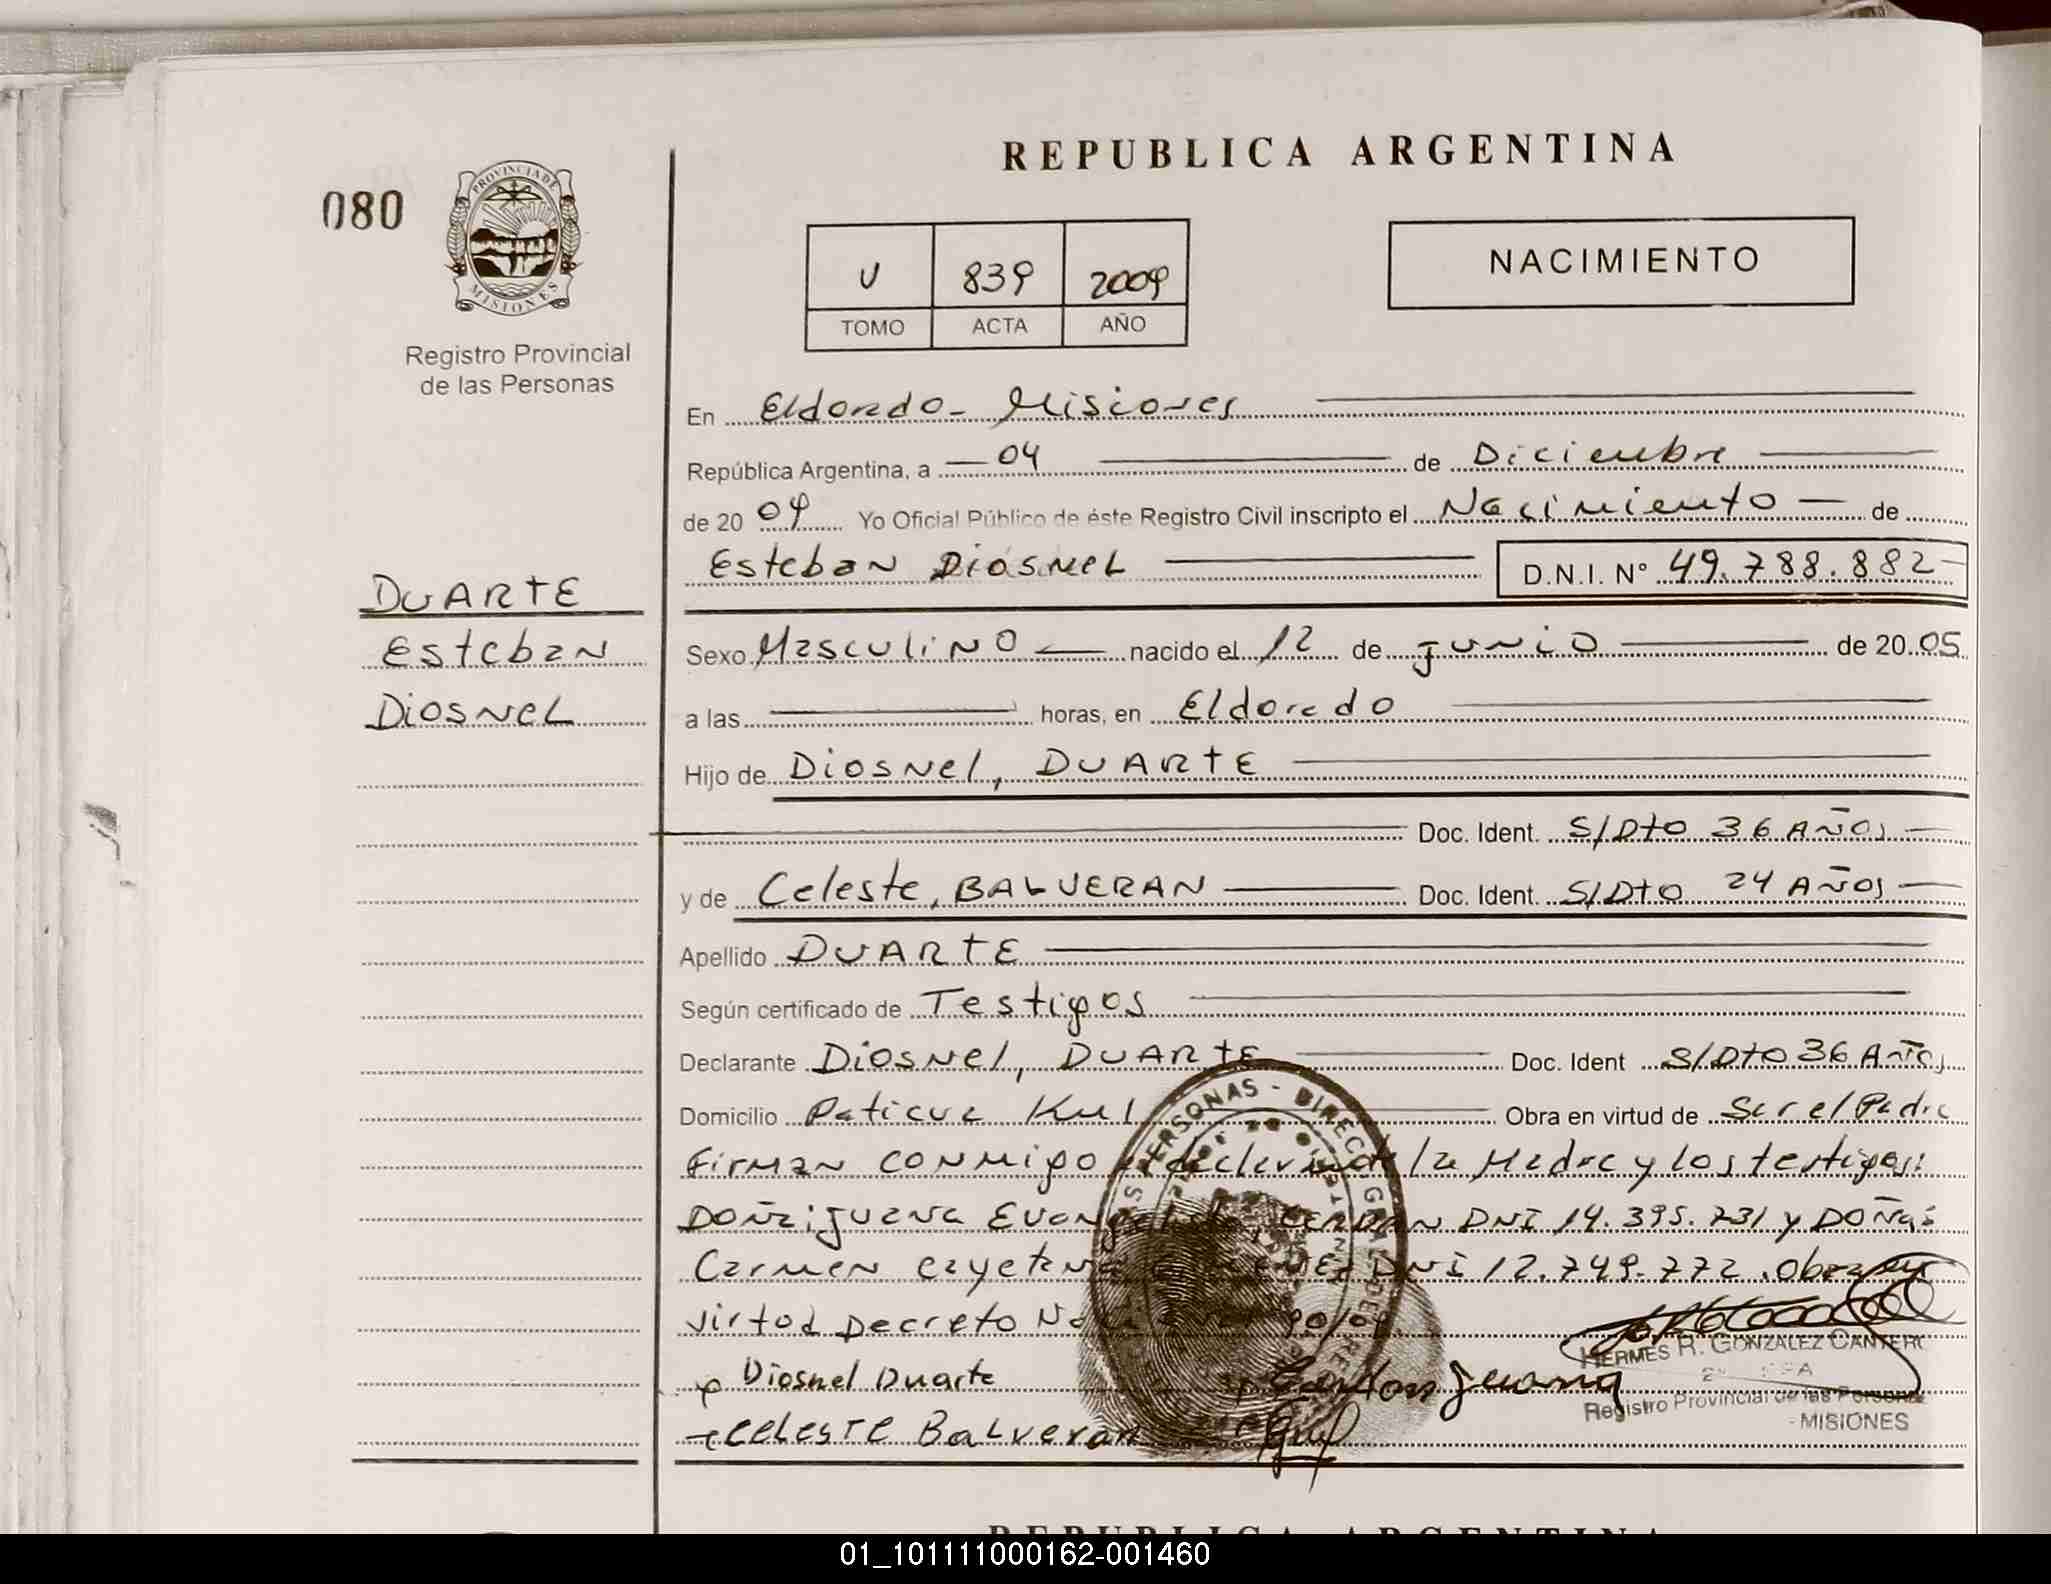 REPUBLICA ARGENTINA
080
PROVINCIA DE
MISIONES
Registro Provincial
de las Personas
NACIMIENTO
U 839 2009
TOMO ACTA AÑO
En Eldorado - Misiones
República Argentina, a 04 de Diciembre
de 20 09 Yo Oficial Público de éste Registro Civil inscripto el Nacimiento de
Esteban Diosnel D.N.I. N° 49.788.882
DUARTE
Esteban
Diosnel
Sexo Masculino nacido el 12 de junio de 20 05
a las horas, en Eldorado
Hijo de Diosnel, DUARTE
Doc. Ident. S/Dto 36 AÑOS
y de Celeste, BALVERAN Doc. Ident. S/Dto 24 AÑOS
Apellido DUARTE
Según certificado de Testigos
Declarante Diosnel, DUARTE Doc. Ident S/Dto 36 Años
Domicilio Paticua Obra en virtud de Ser el Padre
Firman conmigo la Madre y los testigos:
DNI 14.395.731 y Doña:
Carmen Cayetana DNI 12.749.772 . Obra en
virtud Decreto 90/09.
Diosnel Duarte
Celeste Balveran
PERSONAS - DIREC. GRAL. DEL RE
HERMES R. GONZALEZ CANTERO
Registro Provincial de las Personas
- MISIONES
REPUBLICA ARGENTINA
01_101111000162-001460